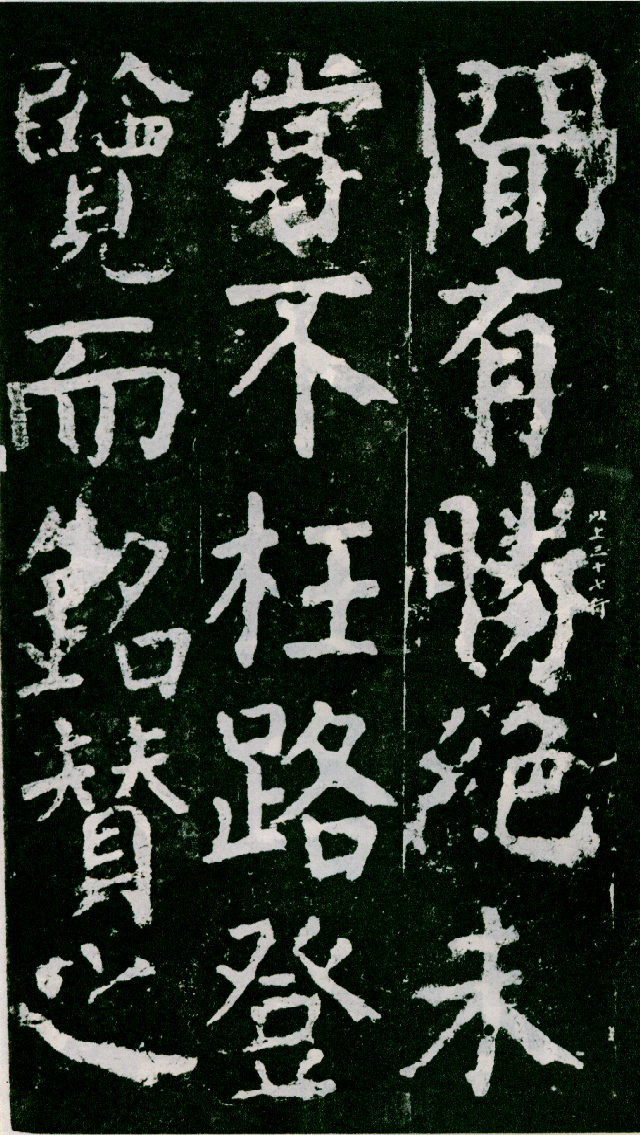 聞有勝絕未
以上三十七行
甞不枉路登
覽而銘贊之